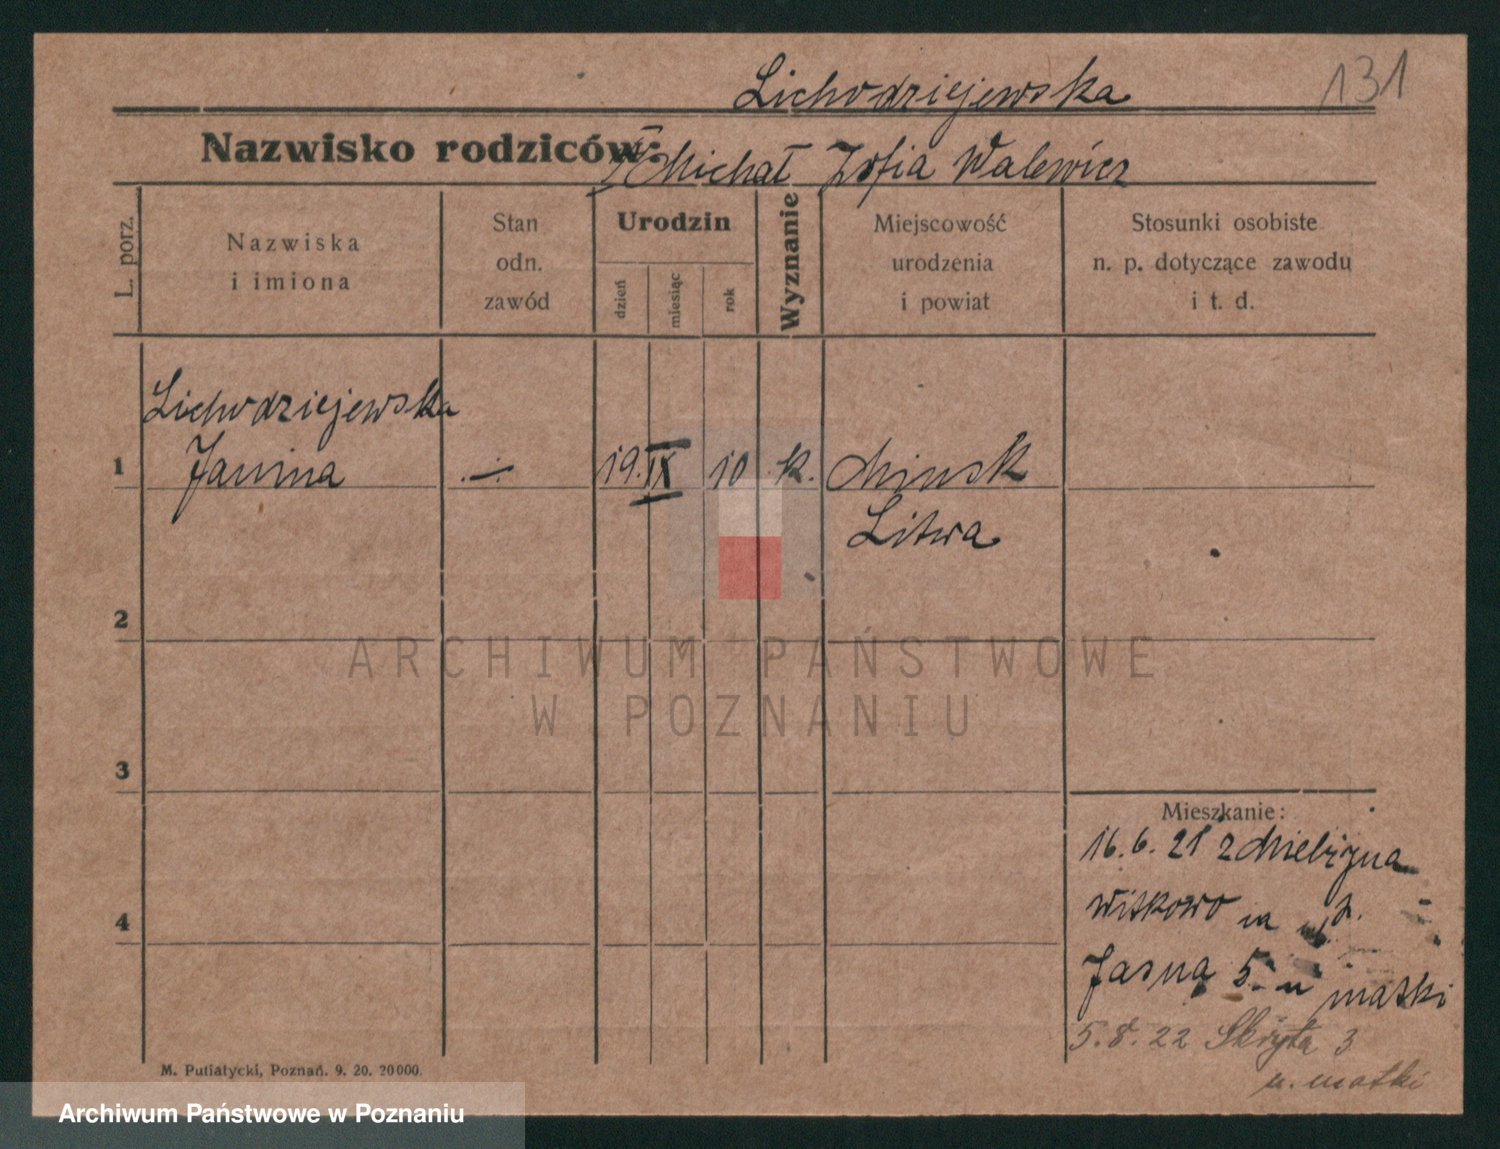 Lichodziejewska 131
Nazwisko rodziców: Michał Zofia Walewicz
L. porz.
Nazwiska
i imiona
Stan
odn.
zawód
Urodzin
dzień
miesiąc
rok
Wyznanie
Miejscowość
urodzenia
i powiat
Stosunki osobiste
n. p. dotyczące zawodu
i t. d.
Lichodziejewska
1 Janina -:- 19. IX 10 k. Minsk
Litwa
2
ARCHIWUM PAŃSTWOWE
W POZNANIU
3
Mieszkanie:
16. 6. 21 z
Witkowo
4
Jasna 5. u matki
5. 8. 22 Skryta 3
u. matki
M. Putiatycki, Poznań. 9. 20. 20000.
Archiwum Państwowe w Poznaniu